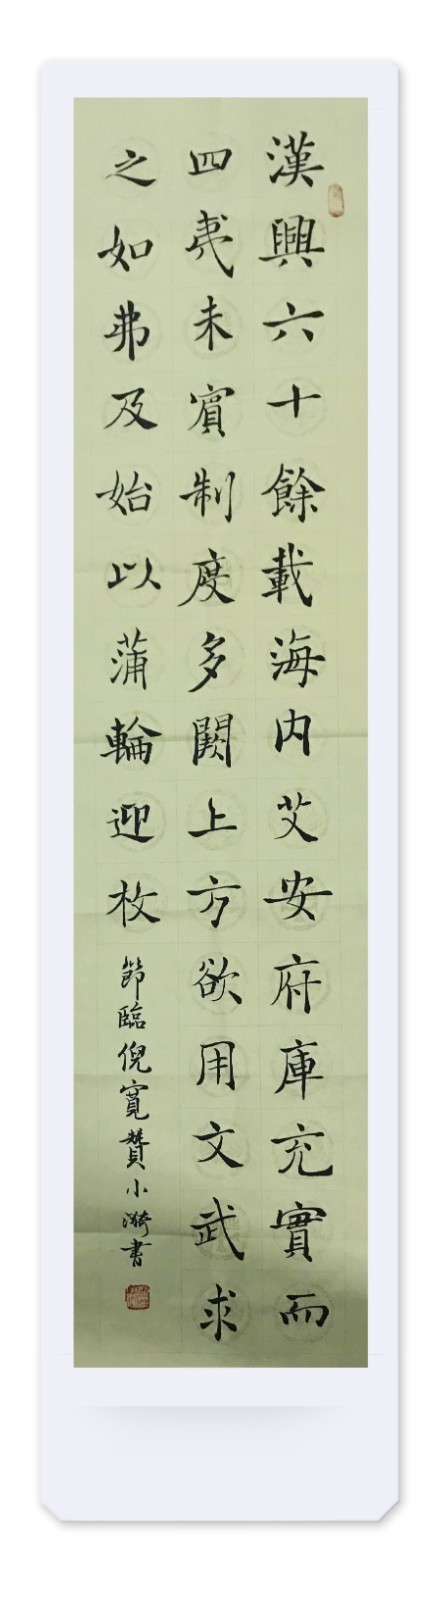 漢興六十餘載海内艾安府庫充實而
四夷未賓制度多闕上方欲用文武求
之如弗及始以蒲輪迎枚
節臨倪寬贊小漪書